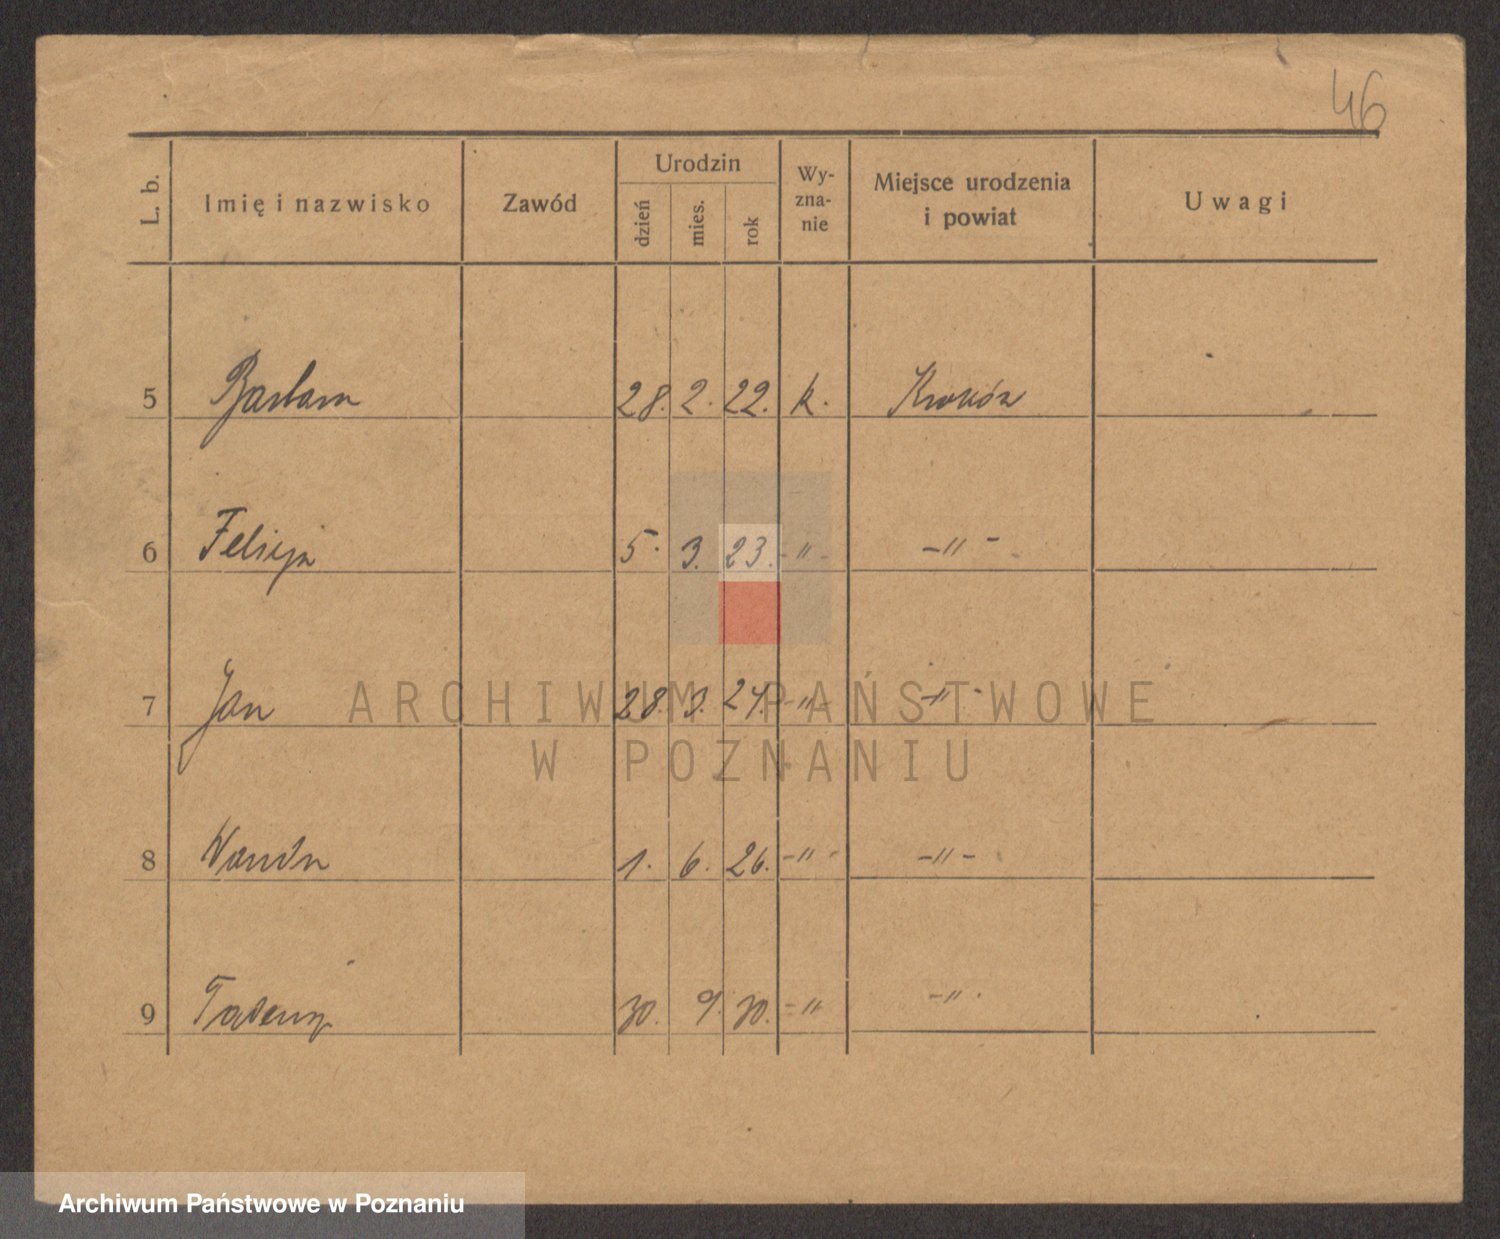 46
L. b. Imię i nazwisko Zawód Urodzin dzień mies. rok Wy-zna-nie Miejsce urodzenia i powiat Uwagi
5 Barbara 28. 2. 22. k.
6 Felicja 5. 3. 23. -"- -"-
7 Jan 28. 3. 24. -"- -"-
ARCHIWUM PAŃSTWOWE
W POZNANIU
8 Wanda 1. 6. 26. -"- -"-
9 30. 9. 30. -"- -"-
Archiwum Państwowe w Poznaniu